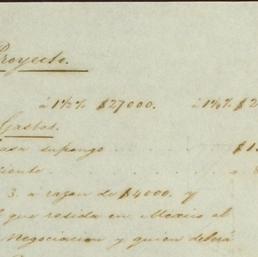 Proyecto.
á 1½% $27000. á 1¼% $2
Gastos.
casa supongo $1
3. a razon de $4000. y
que resida en Mexico al
Negociacion y quien deberá